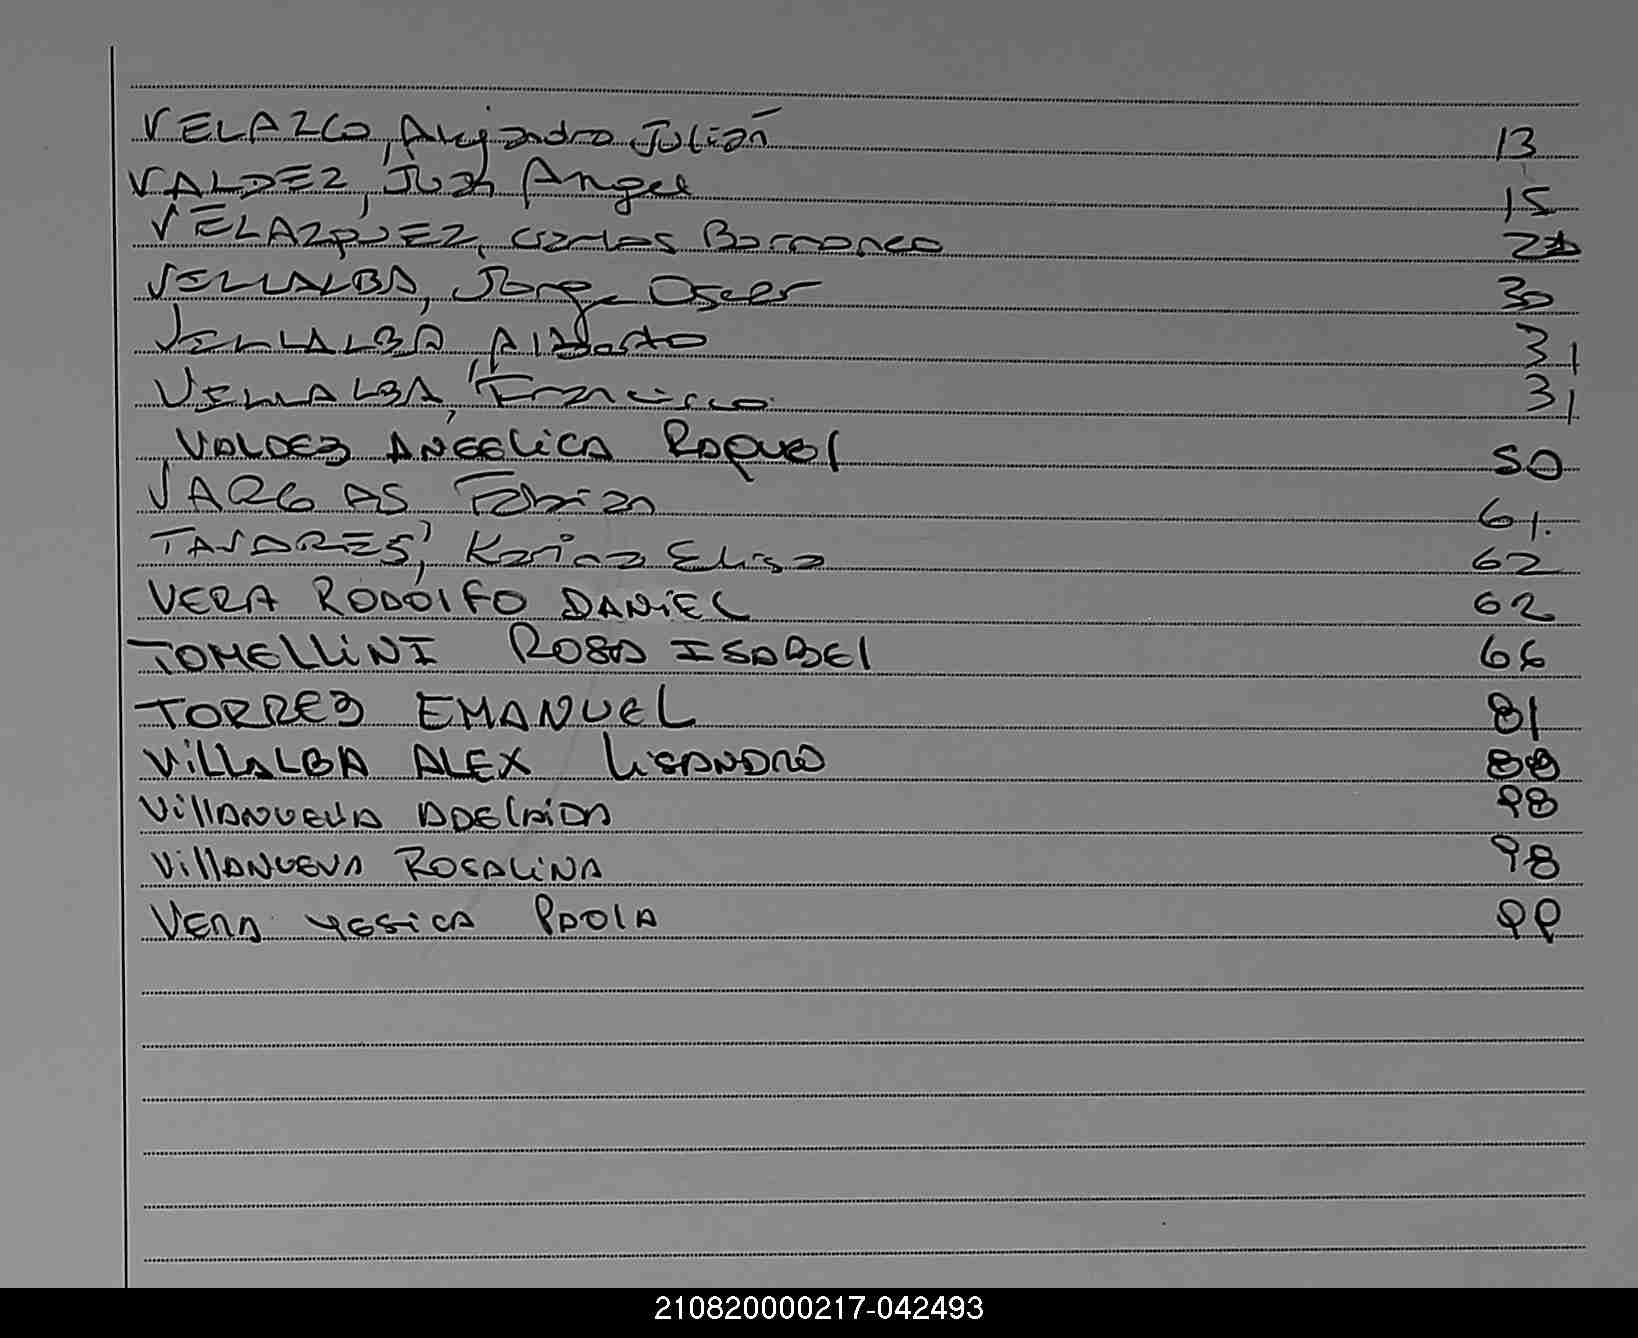 VELAZCO, Alejandro Julián 13
VALDEZ, Juan Angel 15
VELAZQUEZ, Carlos 
VILLALBA, Jorge Oscar 30
VILLALBA, Alberto 31
VILLALBA, Francisco 31
VALDEZ ANGELICA RAQUEl 50
VARGAS Fabian 61.
TAVARES, Karina Elisa 62
VERA RODOlFO DANiEL 62
TOMELLiNI ROSA ISABEl 66
TORREZ EMANUEL 81
ViLLALBA ALEX LiSANDRO 88
VillANUEVA ADELAiDA 98
VillANUEVA ROSALiNA 98
VERA YESiCA PAOlA 99
210820000217-042493